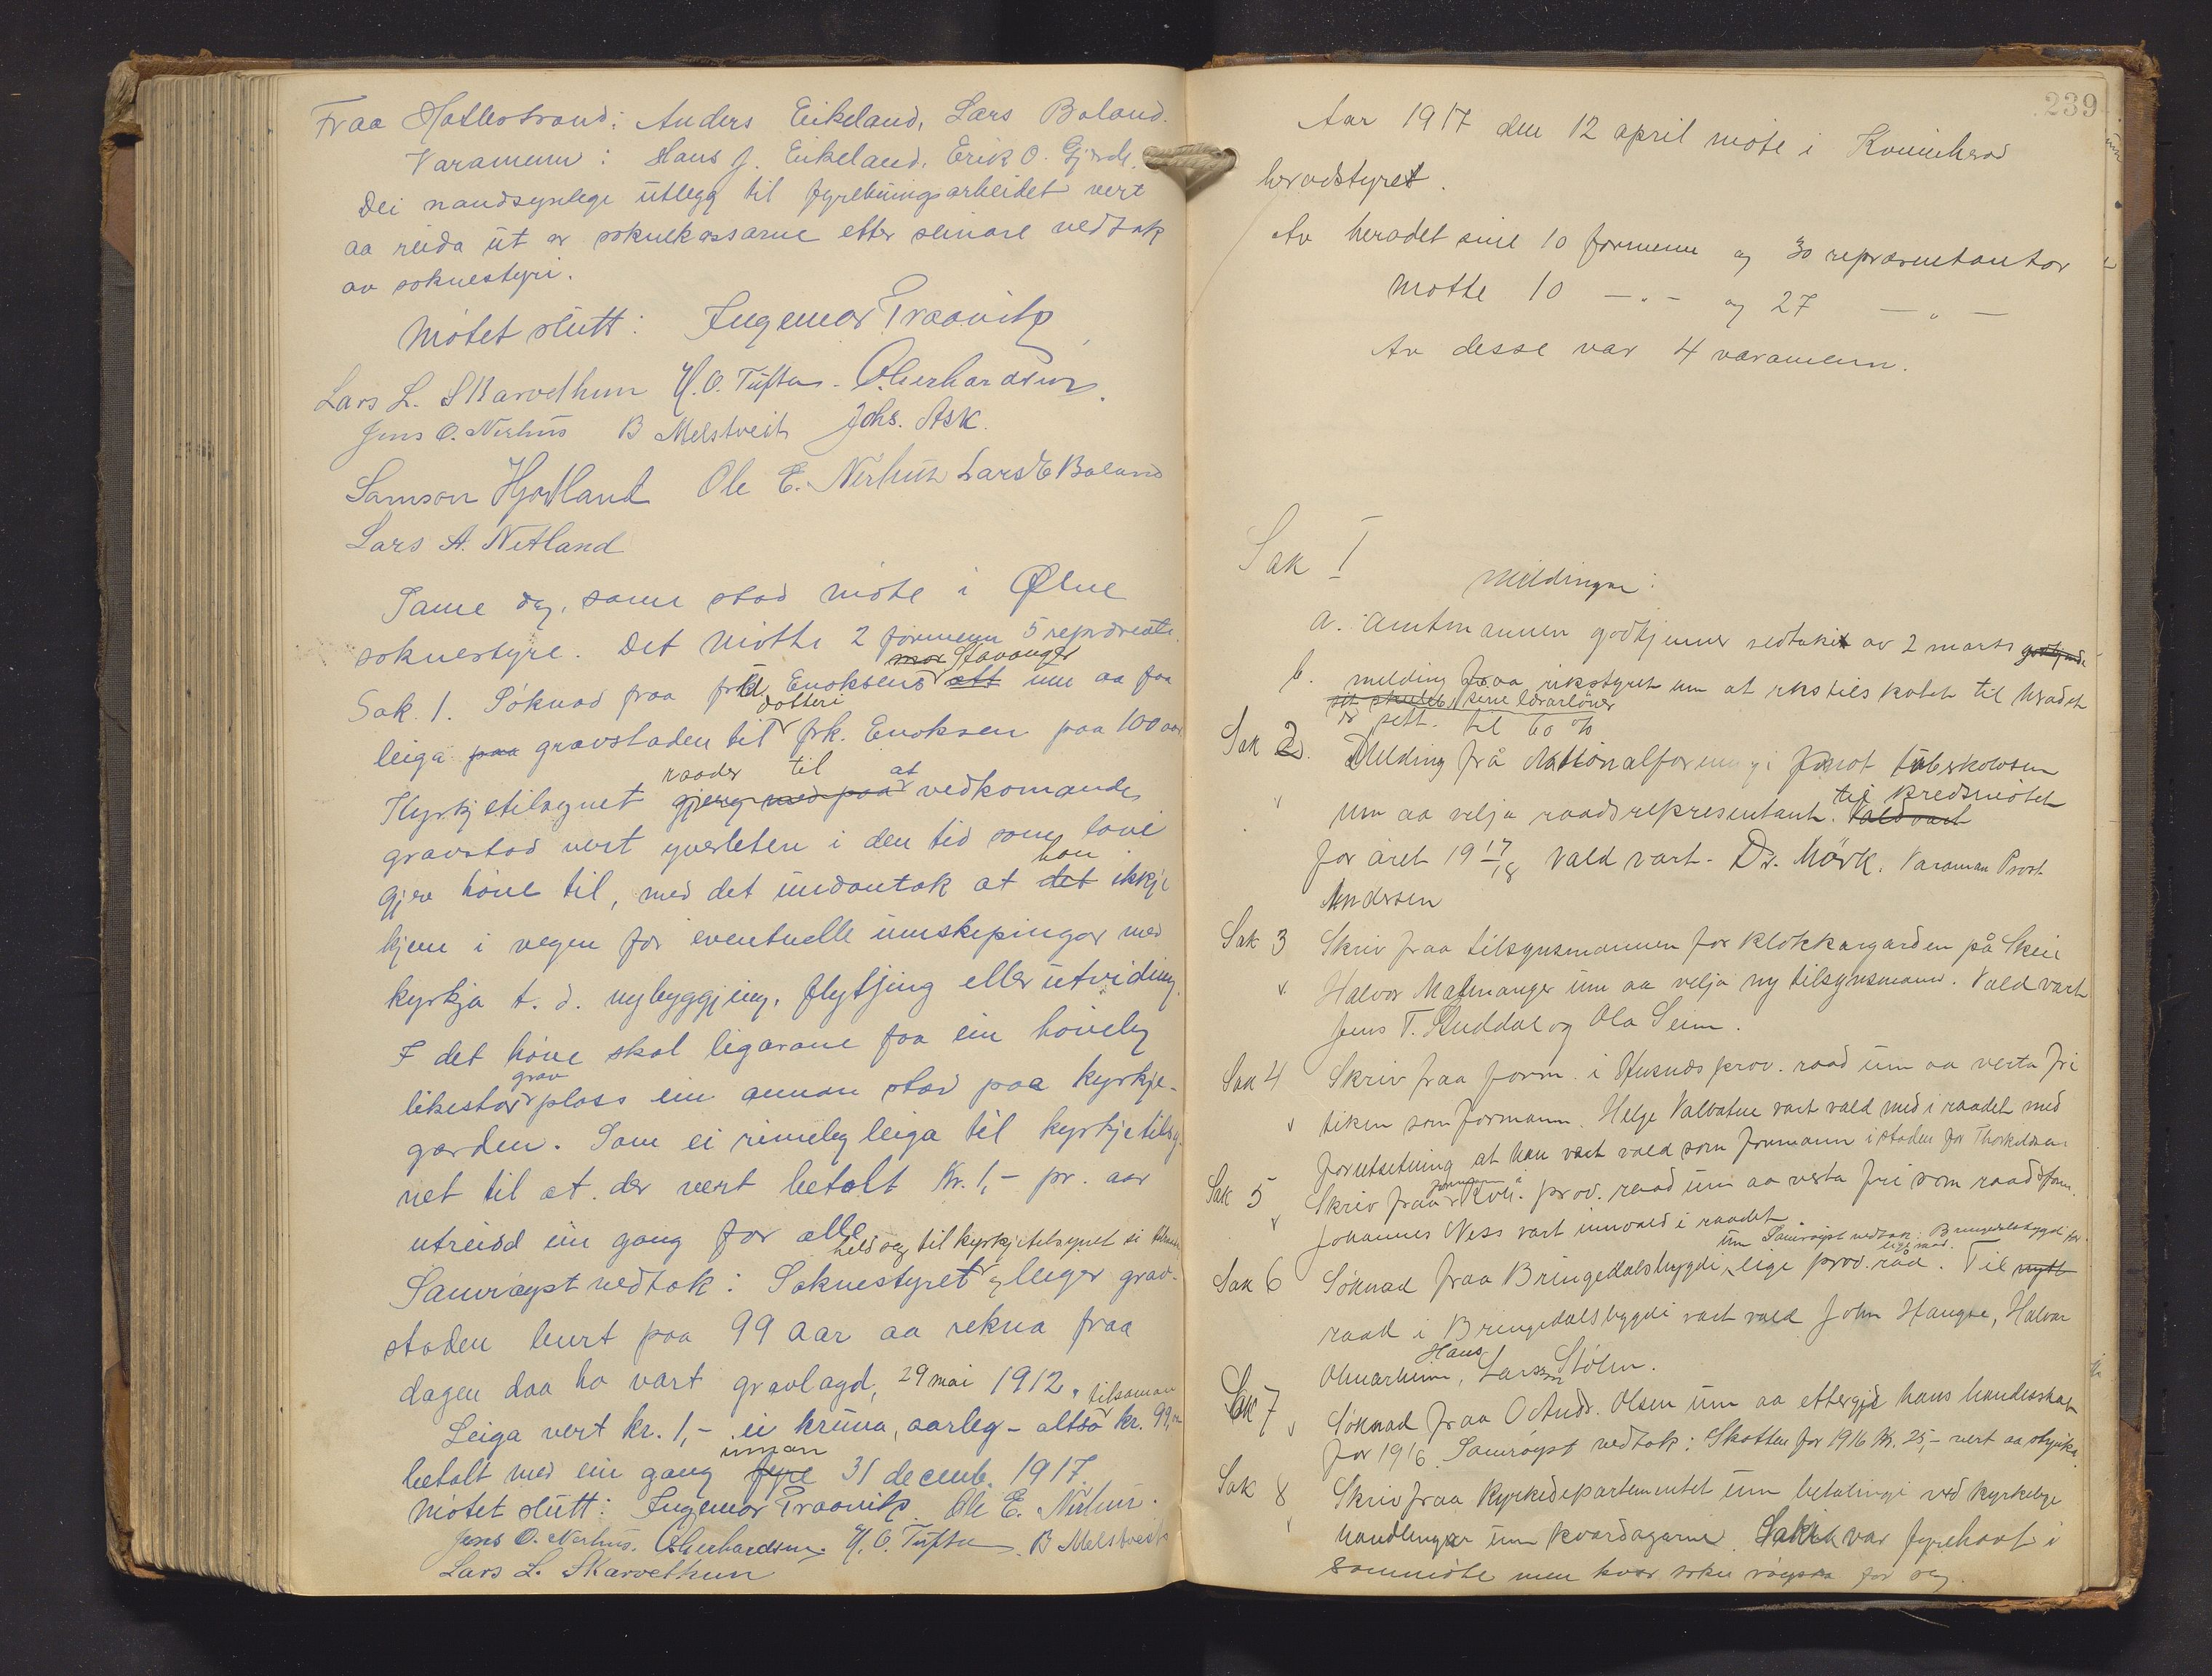 Fraa Hatlestrand: Anders Eikeland, Lars Boland.
Varamenn: Hans J. Eikeland, Erik O. Gjerde.
Dei naudsynlege utlegg til fyrebuingsarbeidet vert
aa reida ut or soknekassarne etter seinare vedtak
av soknestyri.
Møtet slutt: Ingemar Traavik
Lars L. Skarvethun H. O. Tufta O. Gerhardsen.
Jens O. Nerhus B Melstveit Johs. Ask.
Samson Hjortland Ole E. Nerhus Lars E Boland
Lars A. Netland
Same dag, same stad møte i Ølve
soknestyre. Det møtte 2 formenn 5 repræsentr.
mor Stavanger
Sak. 1. Søknad fraa frk Enoksens ætt um aa faa
dotteri
leiga paa gravstaden til frk. Enoksen paa 100 aar
raader til at
Kyrkjetilsynet gjeng med paa vedkomande
gravstad vert yverleten i den tid som lovi
han
gjev høve til, med det undantak at det ikkje
kjem i vegen for eventuelle umskipingar med
kyrkja t. d. nybyggjing, flytjing eller utviding.
I det høve skal ligarane faa ein høveleg
grav
likestor plass ein annan stad paa kyrkje-
garden. Som ei rimeleg leiga til kyrkjetilsy-
net til at der vert betalt Kr. 1,- pr. aar
utreidd ein gang for alle
held seg til kyrkjetilsynet si
Samrøyst vedtak: Soknestyret og leiger grav-
staden burt paa 99 aar aa rekna fraa
dagen daa ho vart gravlagd, 29 mai 1912.
tilsaman
Leiga vert kr. 1,- ei kruna, aarleg - altså kr. 99,-
innan
betalt med ein gang fyre 31 decemb. 1917.
Møtet slutt: Ingemar Traavik Ole E. Nerhus.
Jens O. Nerhus. O. Gerhardsen. H. O. Tufta B Melstveit
Lars L. Skarvethun
239
Aar 1917 den 12 april møte i Kvinnherad
heradstyret.
Av heradet sine 10 formenn og 30 representantar
møtte 10 — " — og 27 — " —
Av desse var 4 varamenn.
Sak I
Meldingar:
a. Amtmannen godkjenner vedtaket av 2 marts godkjende
b. melding fraa rikstyret um at rikstilskotet til heradet
sine lærarløner
er sett til 60 %
Sak 2. Melding frå Nationalforeningi imot tuberkolosen
til kredsmøtet
um aa velja raadsrepresentant. Vald vart
for året 1917/18 Vald vart Dr. Mörk. Varaman Prost
Andersen
Sak 3 Skriv fraa tilsynsmannen for klokkargarden på Skeie
Halvor Malmanger um aa velja ny tilsynsmann. Vald vart
Jens T. Guddal og Ola Seim.
Sak 4 Skriv fraa form. i Husnes prov. raad um aa verta fri
teken som formann. Helge Valvatne vart vald med i raadet med
forutsetning at han vart vald som formann i staden for Thorkildsen
forman
Sak 5 Skriv fraa Kvh. prov. raad um aa verta fri som raadsform.
Johannes Ness vart innvald i raadet
um Samrøyst vedtak: Bringedalsbygdi fær
eige raad.
Sak 6 Søknad fraa Bringedalsbygdi, eige prov. råd. Til nytt
raad i Bringedalsbygdi vart vald John Haugse, Halvor
Hans
Omarheim, Larssen Stølen.
Sak 7 Søknad fraa O Andr. Olsen um aa ettergje hans hundeskat
for 1916. Samrøyst vedtak: Skatten for 1916 Kr. 25,- vert aa stryke.
Sak 8 Skriv fraa Kyrkjedepartementet um betalingi ved kyrkelege
handlingar um kvardagarne. Saki var fyrehavt i
sammøte men kvar sokn røysta for seg.